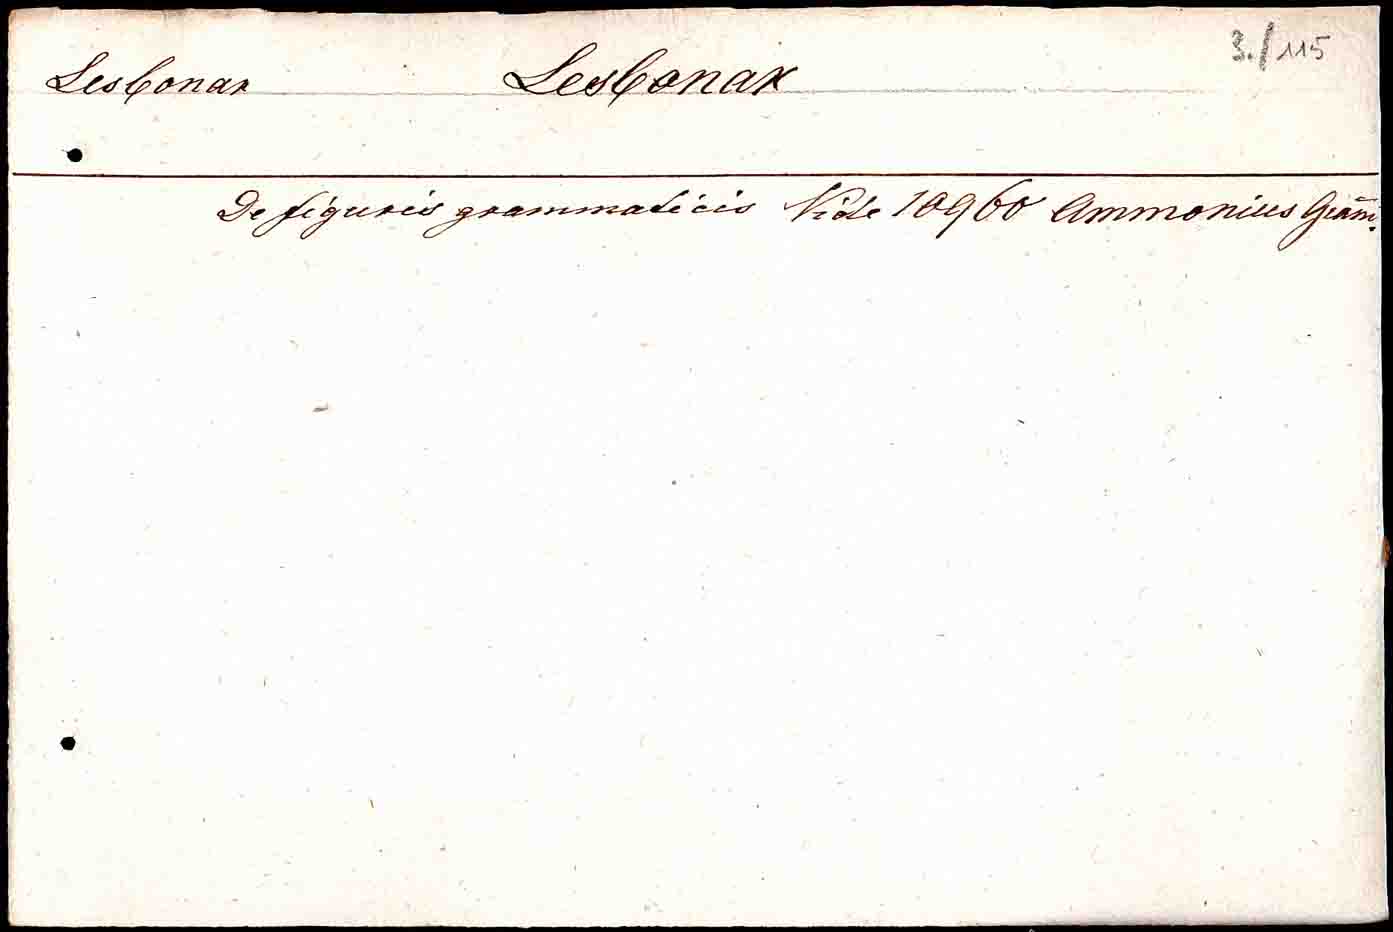 3./115
Lesbonax Lesbonax
De figuris grammaticis Vide 10960 Ammonius Gram̄.